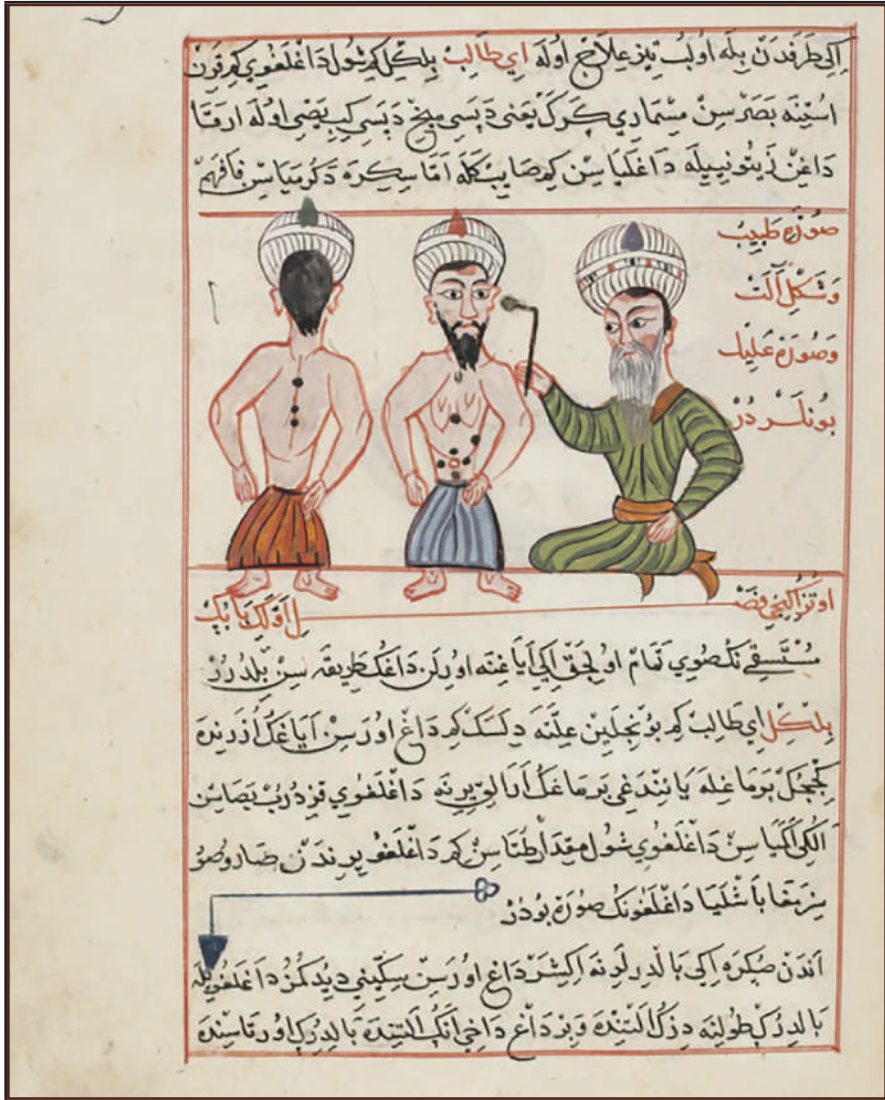 اِكِى طَرَفدَنْ بِلَه اوُلُبْ تِيز عِلَاجْ اوُلَه اي طَالِبْ بِلكِلْ كِم شُولْ دَاغْلَغُوي كِم قَرِنْ
اسْتِنَه بَصَرْسِنْ مِسْمَارِي كَرَكْ يَعْنِى دَپَسِي مِيخْ دَپَسِي كِبِ يَصِى اوُلَه اَرقَا
دَاغِنْ زَيْتُونِييلَه دَاغْلَيَاسِنْ كِم صَايِبْ كَلَه اَمَّا سِكِرَه دَكُرْمِيَاسِنْ فَافْهَمْ
صُورَةِ طَبِيبْ
وَشَكْلِ آلَتْ
وَصُورَةِ عَلِيلْ
بُونلَردُرْ
اوُتُز اِكِنْجِي فَصْل اوَّلْكِ بَابُكْ
مُسْتَسْقِى نُكْ صُويِ تَمَامْ اوُلِجَقْ اِكِى اَيَاغِنَه اوُرِلَنْ دَاغُكْ طَرِيقَه سِنْ بِلْدُرُرْ
بِلكِلْ اي طَالِبْ كِم بُوُنْجِلَيِنْ عِلَّتَه دِلَسَكْ كِم دَاغْ اوُرَسِنْ اَيَاغُكْ اُزَرِنْدَه
كِجِجُكْ بَرمَاغِلَه يَانِنْدَغِى بَرمَاغُكْ اَرَالِقْ يِرِنَه دَاغْلَغُوي قِزدُرُبْ بَصَاسِنْ
اَلُكِى اَكْمَيَاسِنْ دَاغْلَغُوي شُولْ مِقدَارْ طُتَاسِنْ كِم دَاغْلَغُو يِرِنْدَنْ صَارُو صُو
سِزمَغَا بَاشْلَيَا دَاغْلَغُونُكْ صُورَةِ بُودُرْ
اَندَنْ صُكِرَه اِكِى بَالدِرلَرِنَه اِكِشَرْ دَاغْ اوُرَسِنْ سِكِّينِي دِيدُكُمُزْ دَاغْلَغُويلَه
بَالدِرُكْ طُولِنَه دِزُكْ اَلتِنْدَه وَبِرْ دَاغْ دَاخِي اَنُكْ اَلتِنْدَه بَالدِرُكْ اوُرتَاسِنْدَه